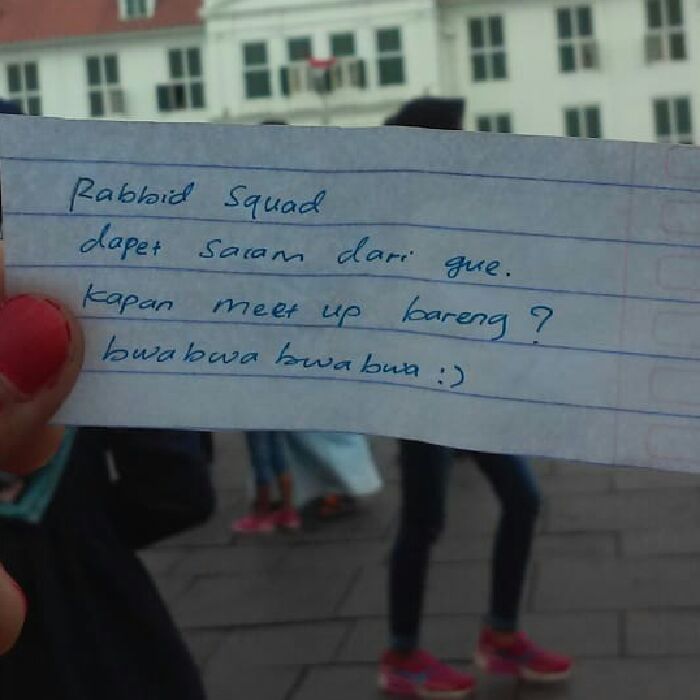 Rabbid Squad
dapet salam dari gue.
Kapan meet up bareng?
bwabwabwabwa :)